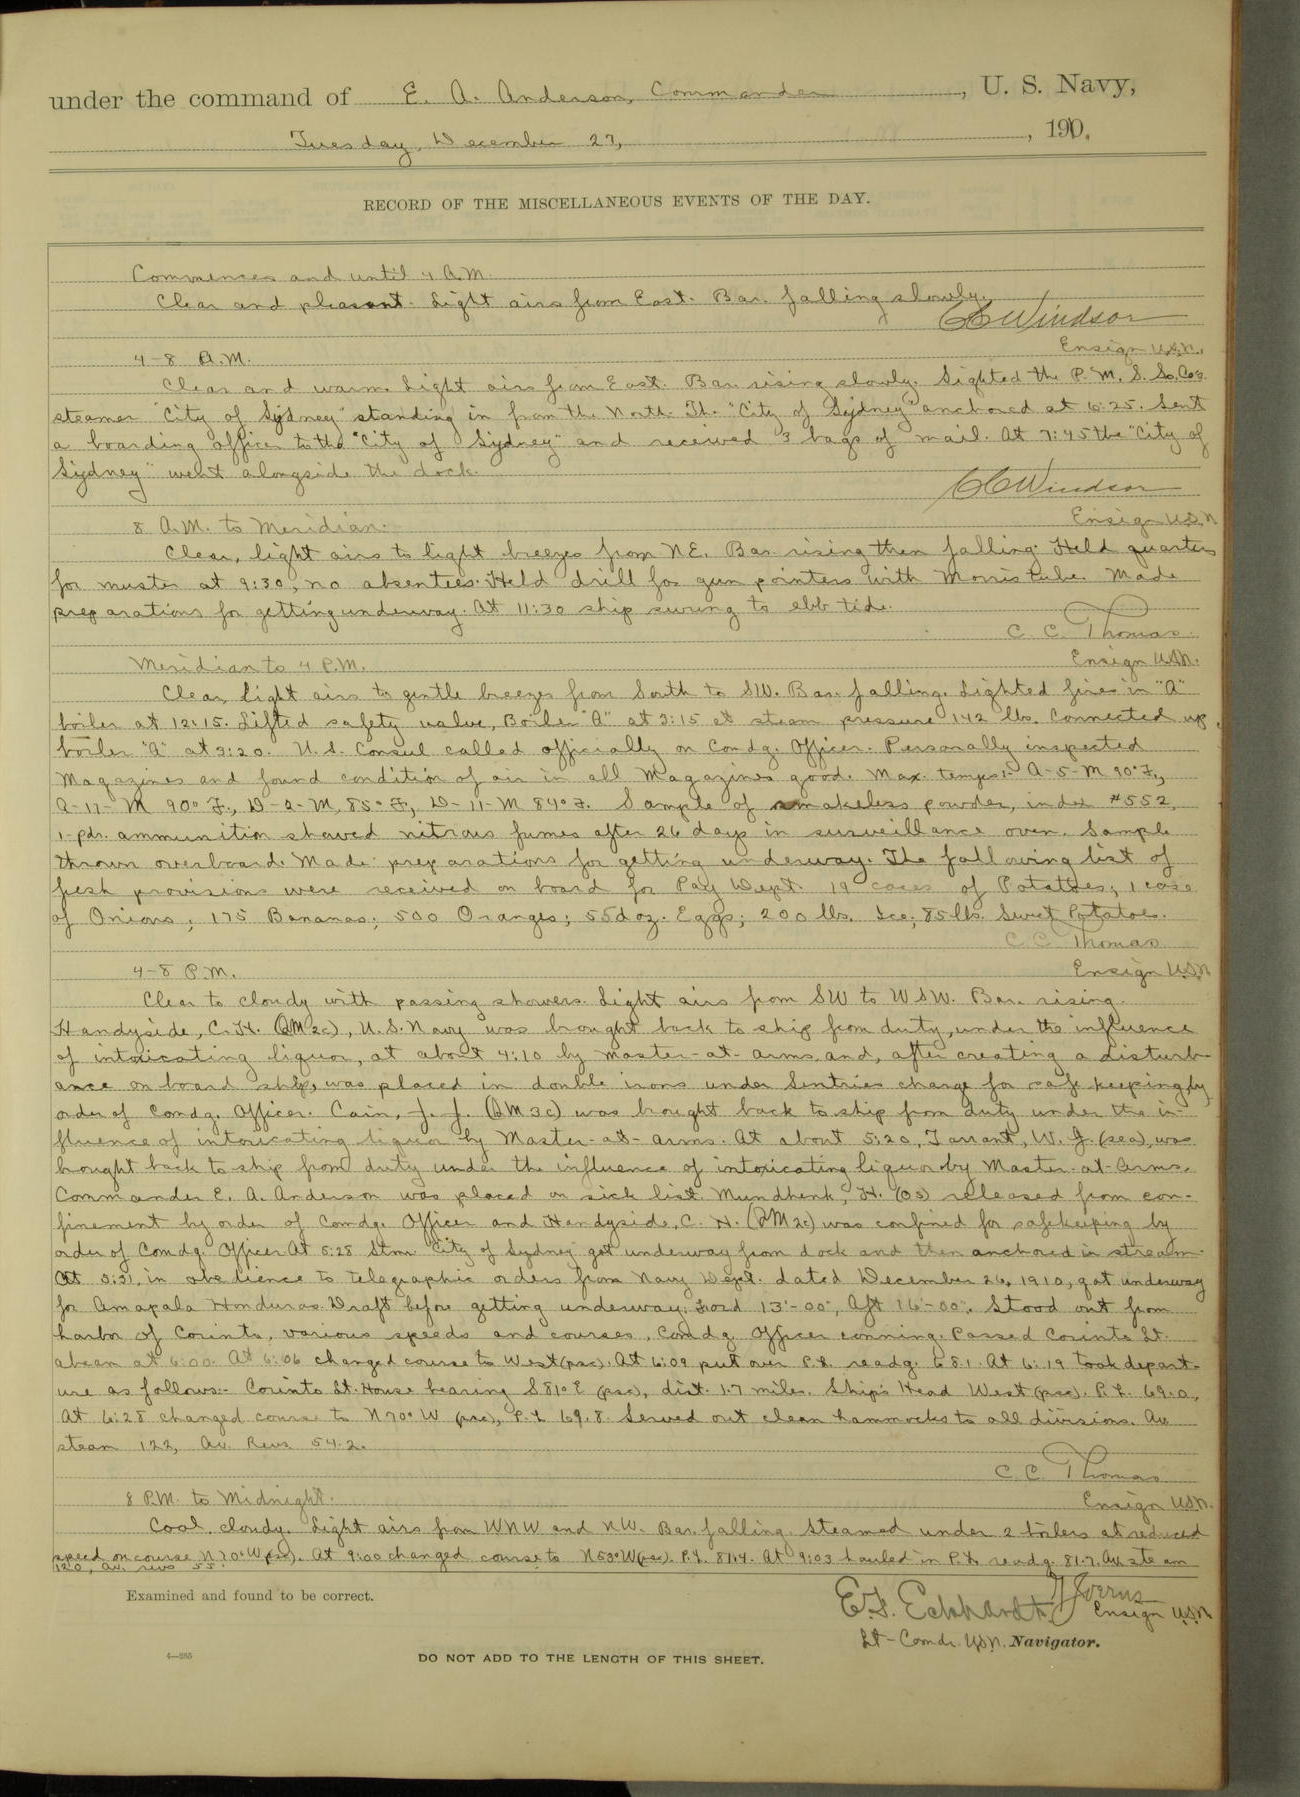 under the command of E. A. Anderson, Commander, U. S. Navy,
Tuesday, December 27, 1910.
RECORD OF THE MISCELLANEOUS EVENTS OF THE DAY.
Commences and until 4 A.M.
Clear and pleasant. Light airs from East. Bar. falling slowly.
C C Windsor
Ensign U.S.N.
4-8 A.M.
Clear and warm. Light airs from East. Bar. rising slowly. Sighted the P. M. S. S. Co's
steamer "City of Sydney" standing in from the North. The "City of Sydney" anchored at 6:25. Sent
a boarding officer to the "City of Sydney" and received 3 bags of mail. At 7:45 the "City of
Sydney" went alongside the dock.
C C Windsor
Ensign U.S.N
8 A.M. to Meridian.
Clear, light airs to light breezes from NE. Bar. rising then falling. Held quarters
for muster at 9:30, no absentees. Held drill for gun pointers with Morris tube. Made
preparations for getting underway. At 11:30 ship swung to ebb tide.
C. C. Thomas
Ensign U.S.N.
Meridian to 4 P.M.
Clear, light airs to gentle breezes from South to SW. Bar. falling. Lighted fires in "A"
boiler at 12:15. Lifted safety valve, Boiler "A" at 3:15 at steam pressure 142 lbs. Connected up
boiler "A" at 3:20. U. S. Consul called officially on Comdg. Officer. Personally inspected
Magazines and found condition of air in all Magazines good. Max. temps:- A-5-M 90°F.,
A-11-M 90° F., D-2-M, 85° F., D-11-M 84° F. Sample of smokeless powder, index #552,
1-pdr. ammunition showed nitrous fumes after 26 days in surveillance oven. Sample
thrown overboard. Made preparations for getting underway. The following list of
fresh provisions were received on board for Pay Dept. 19 cases of Potatoes; 1 case
of Onions; 175 Bananas; 500 Oranges; 55 doz. Eggs; 200 lbs. Ice; 85 lbs. Sweet Potatoes.
C. C. Thomas
Ensign U.S.N
4-8 P.M.
Clear to cloudy with passing showers. Light airs from SW to WSW. Bar. rising.
Handyside, C. H. (BM2c), U. S. Navy was brought back to ship from duty, under the influence
of intoxicating liquor, at about 4:10 by Master-at-Arms, and, after creating a disturb-
ance on board ship, was placed in double irons under Sentries charge for safe keeping by
order of Comdg. Officer. Cain, J. J. (BM3C) was brought back to ship from duty under the in-
fluence of intoxicating liquor by Master-at-Arms. At about 5:20, Tarrant, W. J. (sea), was
brought back to ship from duty under the influence of intoxicating liquor by Master-at-Arms.
Commander E. A. Anderson was placed on sick list. Mundhenk, H. (OS) released from con-
finement by order of Comdg. Officer and Handyside, C. H. (BM2c) was confined for safekeeping by
order of Comdg. Officer. At 5:28 Stmr "City of Sydney" got underway from dock and then anchored in stream.
At 5:31, in obedience to telegraphic orders from Navy Dept. dated December 26, 1910, got underway
for Amapala Honduras. Draft before getting underway: Ford 13'-00", Aft 16'-00". Stood out from
harbor of Corinto, various speeds and courses, Comdg. Officer conning. Passed Corinto Lt.
abeam at 6:00. At 6:06 changed course to West (psc). At 6:09 put over P.L. readg. 68.1. At 6:19 took depart-
ure as follows:- Corinto Lt. House bearing S81°E (psc), dist. 1.7 miles. Ship's Head West (psc). P.L. 69.0,
At 6:28 changed course to N70°W (psc), P.L. 69.8. Served out clean hammocks to all divisions. Av.
steam 122, Av. Revs. 54.2.
C. C. Thomas
Ensign U.S.N.
8 P.M. to Midnight.
Cool, cloudy. Light airs from WNW and NW. Bar. falling. Steamed under 2 boilers at reduced
speed on course N70°W (psc). At 9:00 changed course to N53°W (psc). P.L. 81.4. At 9:03 hauled in P.L. readg. 81.7. Av. steam
120, Av. revs 55.
Ensign U.S.N
Examined and found to be correct.
Lt-Comdr. U.S.N. Navigator.
DO NOT ADD TO THE LENGTH OF THIS SHEET.